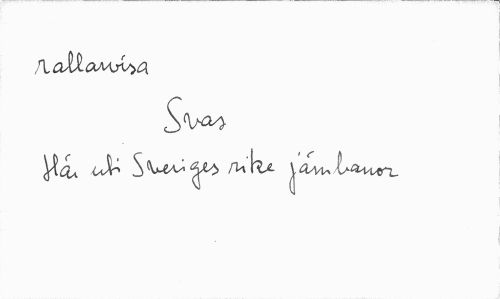 rallarvisa
Svas
Här uti Sveriges rike järnbanor